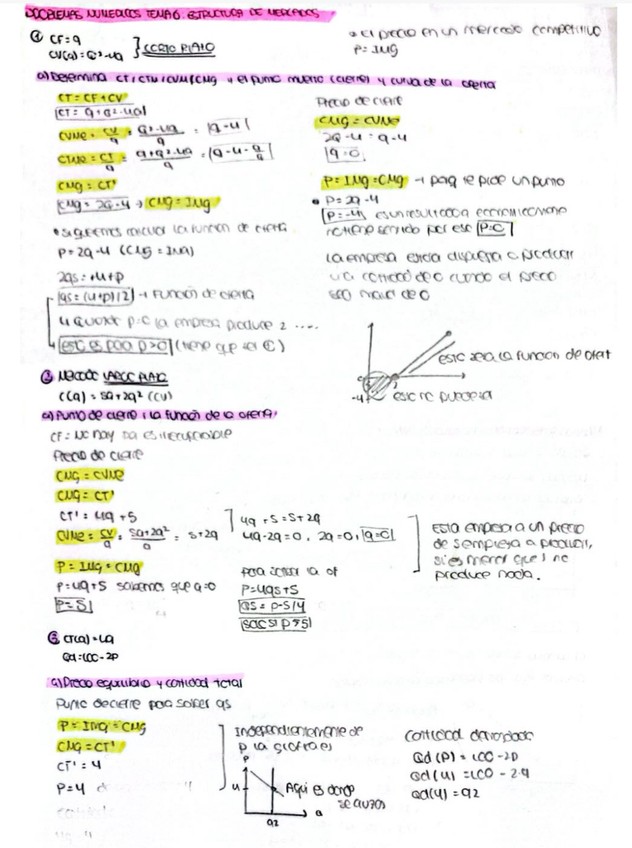 PROBLEMAS NUMÉRICOS TEMA 6. ESTRUCTURA DE MERCADOS
① CF = 9
CV(q) = Q²-4Q } CORTO PLAZO
* el precio en un mercado competitivo
P = IMG
a) Determina CT/CTM/CVM/CMG y el punto muerto (cierre) y curva de la oferta
CT = CF + CV
CT = 9 + Q² - 4Q
CVME = CV/q = Q²-4Q/q = q-4
CTME = CT/q = 9+Q²-4Q/q =
CMG = CT'
CMG = 2Q-4 → CMG = IMG
* si queremos calcular la función de oferta
P = 2q-4 (CMG = IMG)
2qs = 4+p
qs = (4+p)/2 → Función de oferta
4 cuando p=0 la empresa produce 2 ....
esto es para p>0 (tiene que ser
Precio de cierre
CMG = CVME
2Q-4 = q-4
q=0
P = IMG = CMG → para te pide un punto
P = 2q-4
P=-4 es un resultado económicamente
no tiene sentido por eso P=0
La empresa estaría dispuesta a producir
una cantidad de 0 cuando el precio
sea
-4
esto sea la función de ofert
esto no puede ser
② Mercado LARGO PLAZO
C(q) = 5q+2q² (CV)
a) Punto de cierre y la función de la oferta:
CF = No hay
Precio de cierre
CMG = CVME
CMG = CT'
CT' = 4q+5
CVME = CV/q = 5q+2q²/q = 5+2q
4q+5 = 5+2q
4q-2q=0, 2q=0, q=0
Esta empresa a un precio
de 5 empieza a producir,
si es menor que 5 no
produce nada.
P = IMG = CMG
P = 4q+5 sabemos que q=0
P=5
para sacar la of
P = 4qs+5
qs = p-5/4
solo si p≥5
③ CT(q) = 4q
Qd = 100-2P
a) Precio equilibrio y cantidad total
Punto de cierre para saber qs
P = IMG = CMG
CMG = CT'
CT' = 4
P=4
Independientemente de
p la gráfica es
P
4
Aquí es donde
se cruzan
92
Q
Cantidad demandada
Qd (P) = 100-2P
Qd (4) = 100-2·4
Qd (4) = 92